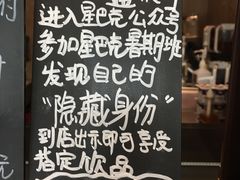 进入星巴克公众号
参加星巴克暑期班
发现自己的
“隐藏身份”
到店出示即可享受
指定饮品